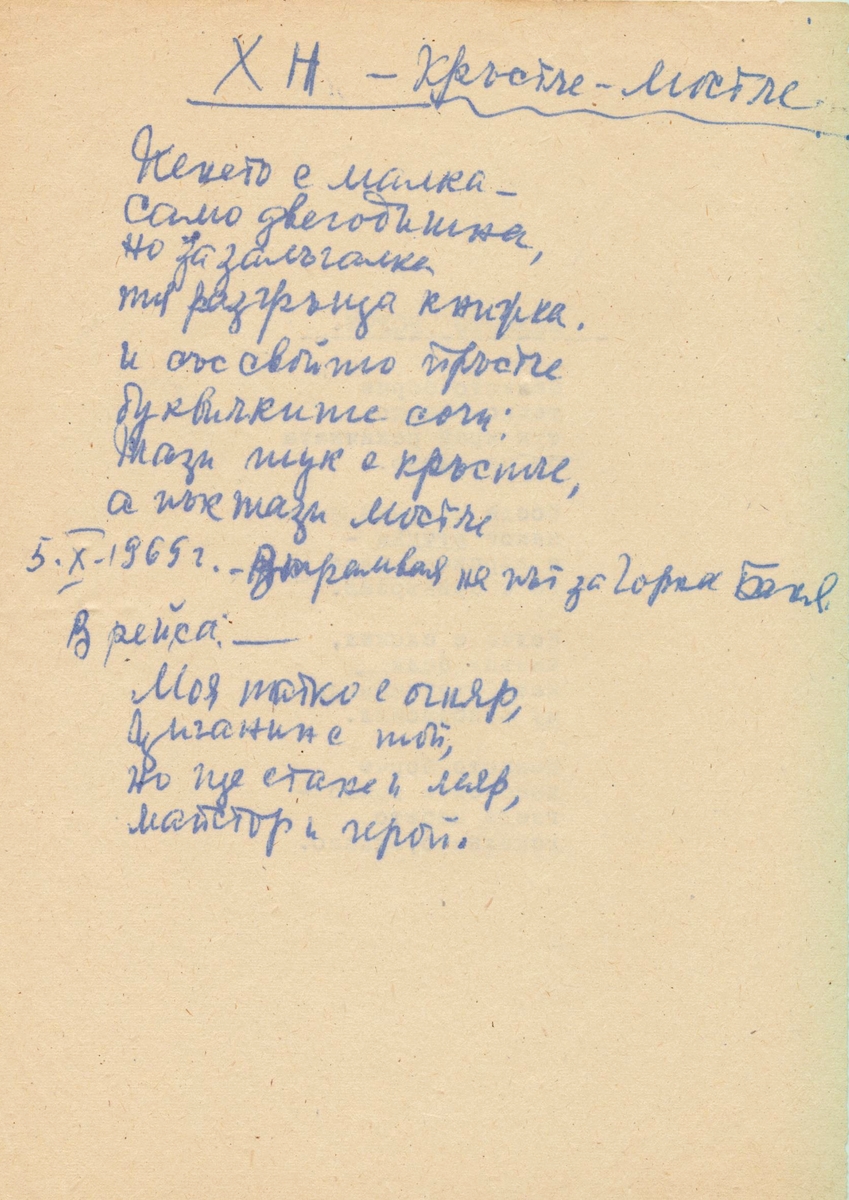 ХН - Кръстче - Мостче
Ненето е малка -
само двегодишна,
но за залъгалка
тя разгръща книжка.
и със свойто пръстче
буквичките сочи:
Тази тук е кръстче,
а пък тази мостче
5.X.1965 г. - В трамвая на път за Горна Баня
В рейса: —
Моя татко е огняр,
Циганин е той,
но ще стане и леяр,
майстор и герой.